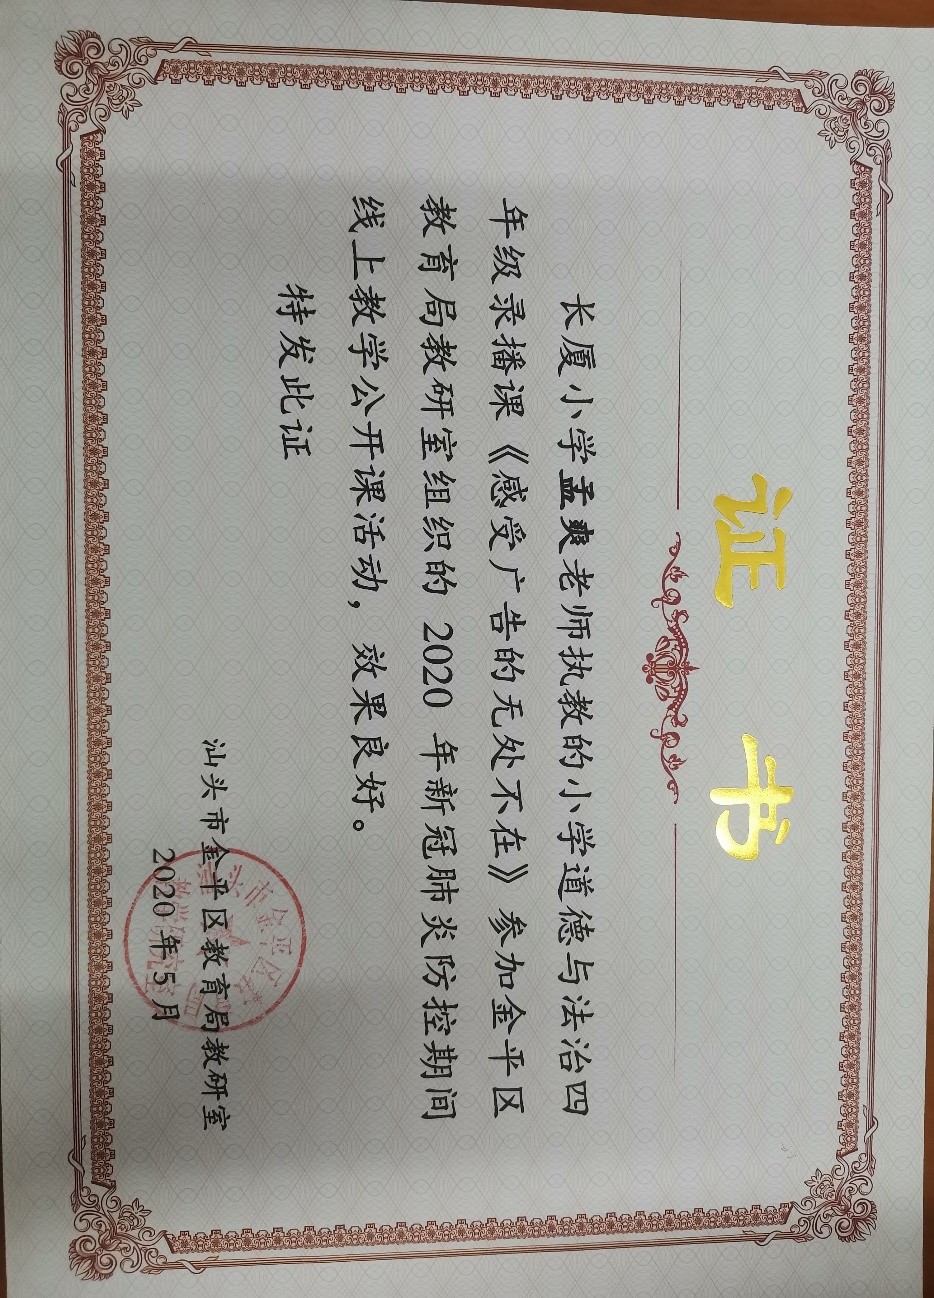 证书
长厦小学孟爽老师执教的小学道德与法治四
年级录播课《感受广告的无处不在》参加金平区
教育局教研室组织的 2020 年新冠肺炎防控期间
线上教学公开课活动，效果良好。
特发此证
汕头市金平区教育局教研室
2020年5月